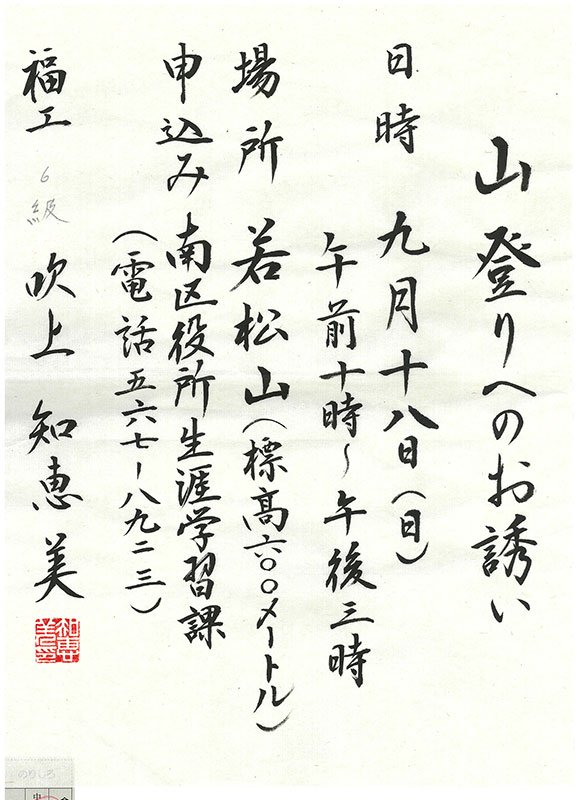 山登りへのお誘い
日時 九月十八日(日)
午前十時~午後三時
場所 若松山(標高六〇〇メートル)
申込み 南区役所生涯学習課
(電話五六七ー八九二三)
福工 6級 吹上 知恵美
のりしろ